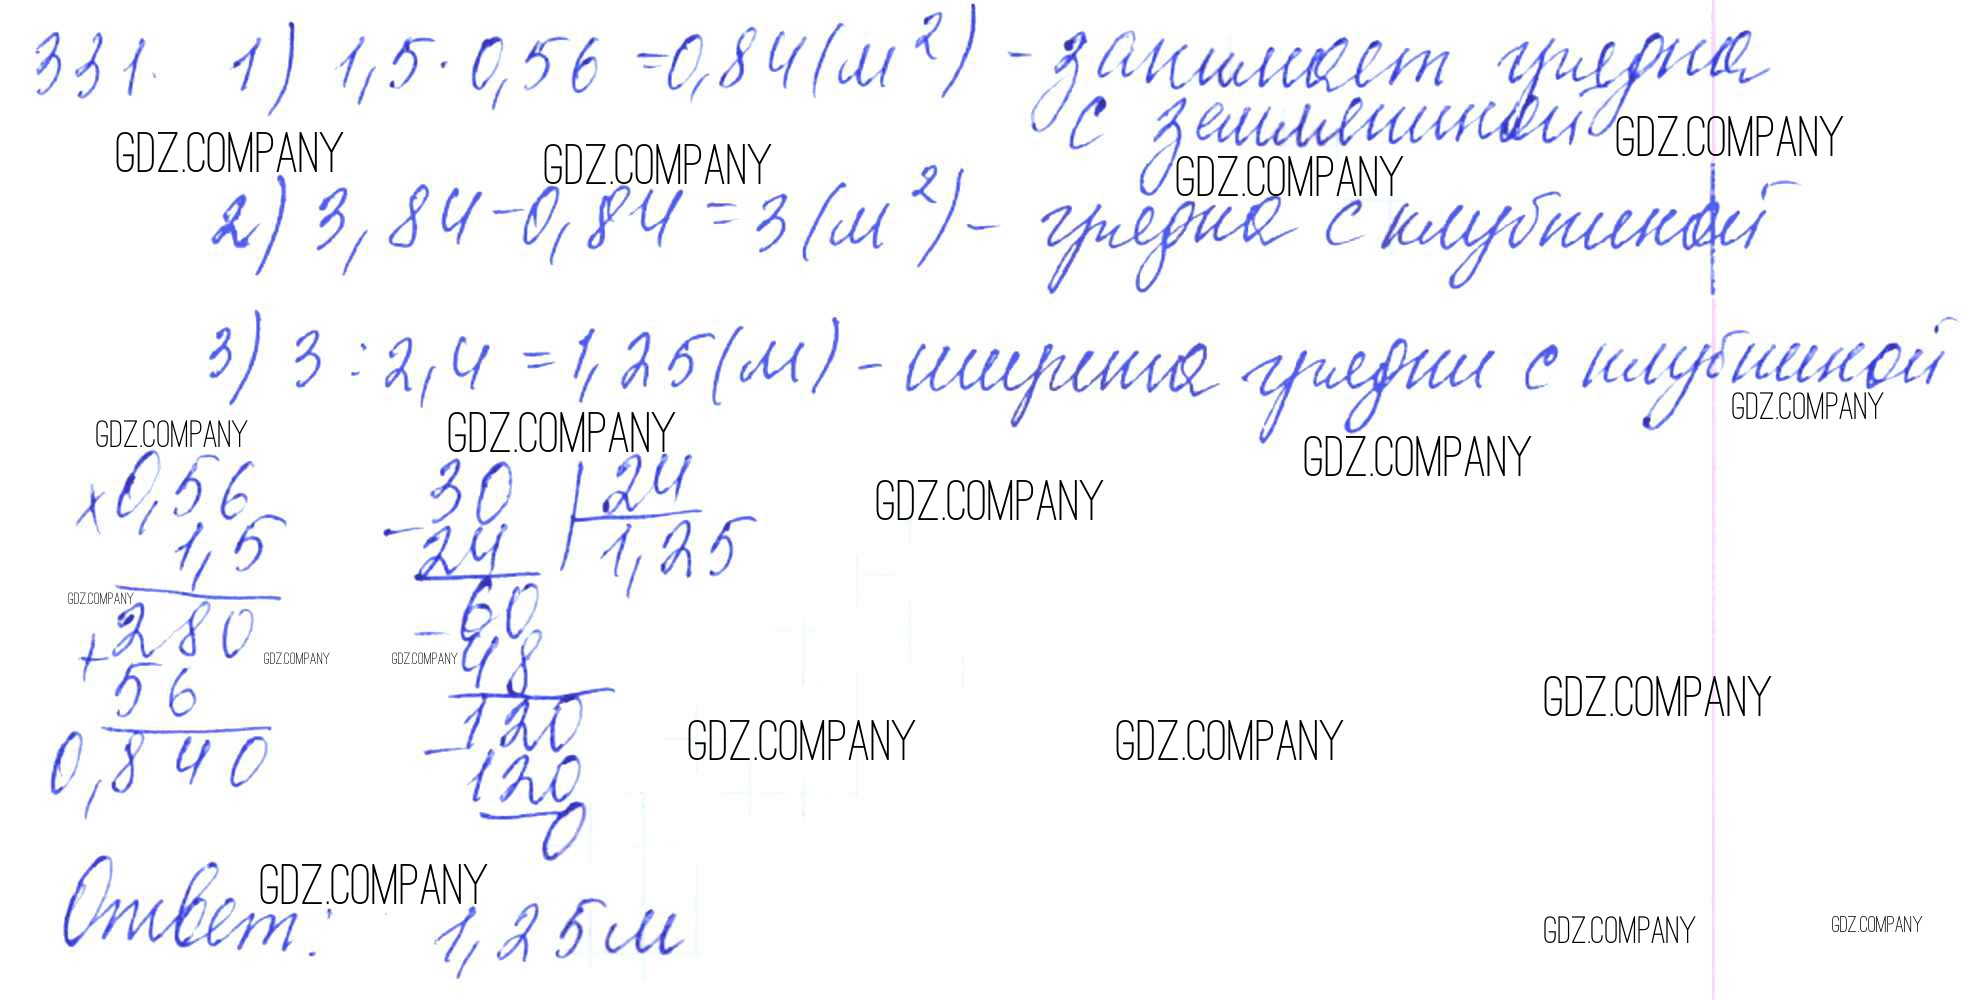 331. 1) 1,5 · 0,56 = 0,84 (м²) – занимает грядка
с земляникой
GDZ.COMPANY GDZ.COMPANY GDZ.COMPANY GDZ.COMPANY
2) 3,84 – 0,84 = 3 (м²) – грядка с клубникой
3) 3 : 2,4 = 1,25 (м) – ширина грядки с клубникой
GDZ.COMPANY GDZ.COMPANY GDZ.COMPANY GDZ.COMPANY
× 0,56
1,5
GDZ.COMPANY
+ 280
56
0,840
– 30 | 24
24 1,25
– 60
48
– 120
120
0
GDZ.COMPANY
GDZ.COMPANY GDZ.COMPANY
GDZ.COMPANY GDZ.COMPANY GDZ.COMPANY
GDZ.COMPANY
Ответ: 1,25 м
GDZ.COMPANY GDZ.COMPANY